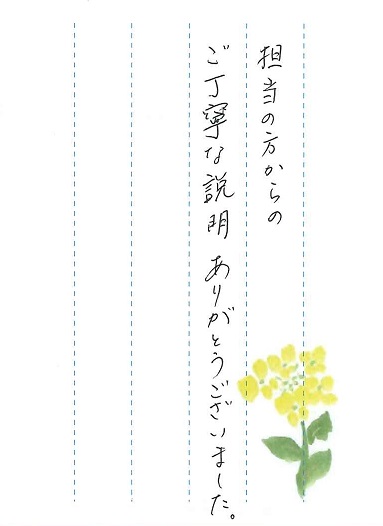 担当の方からの
ご丁寧な説明 ありがとうございました。